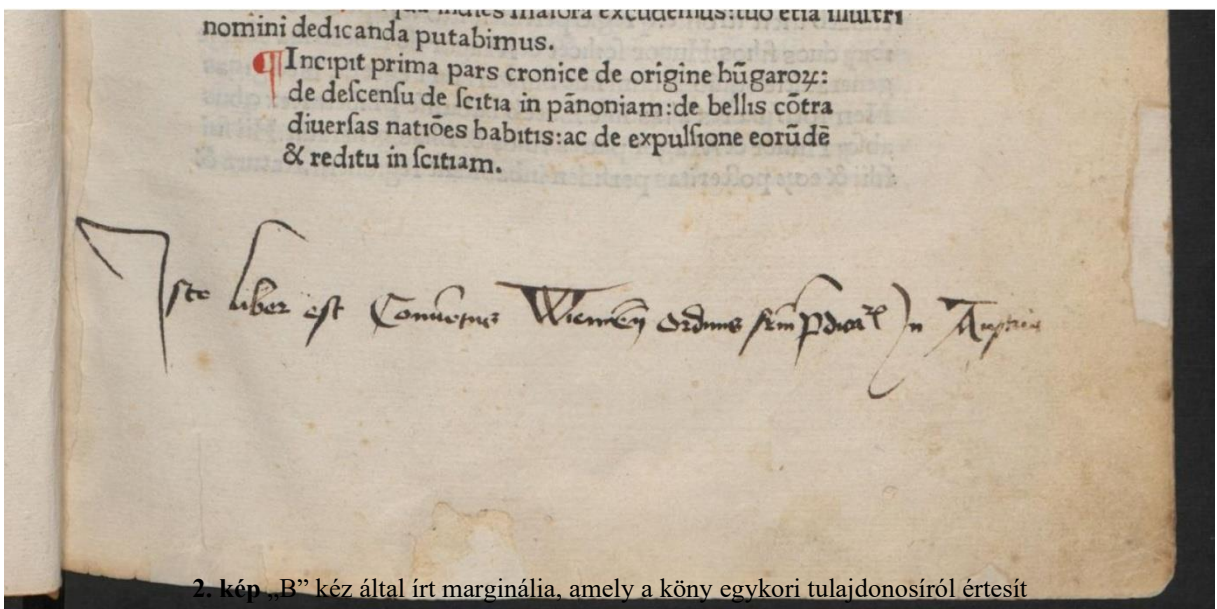 maiora excudemus:tuo etiā illuſtri
nomini dedicanda putabimus.
¶Incipit prima pars cronice de origine hūgaroꝝ:
de deſcenſu de ſcitia in pānoniam:de bellis cōtra
diuerſas natiōes habitis:ac de expulſione eorūdē
& reditu in ſcitiam.
Iſte liber eſt Conuētus Wiennēn ordinis frm̄ p̄dicaꝝ In Auſtria
2. kép „B” kéz által írt marginália, amely a köny egykori tulajdonosíról értesít